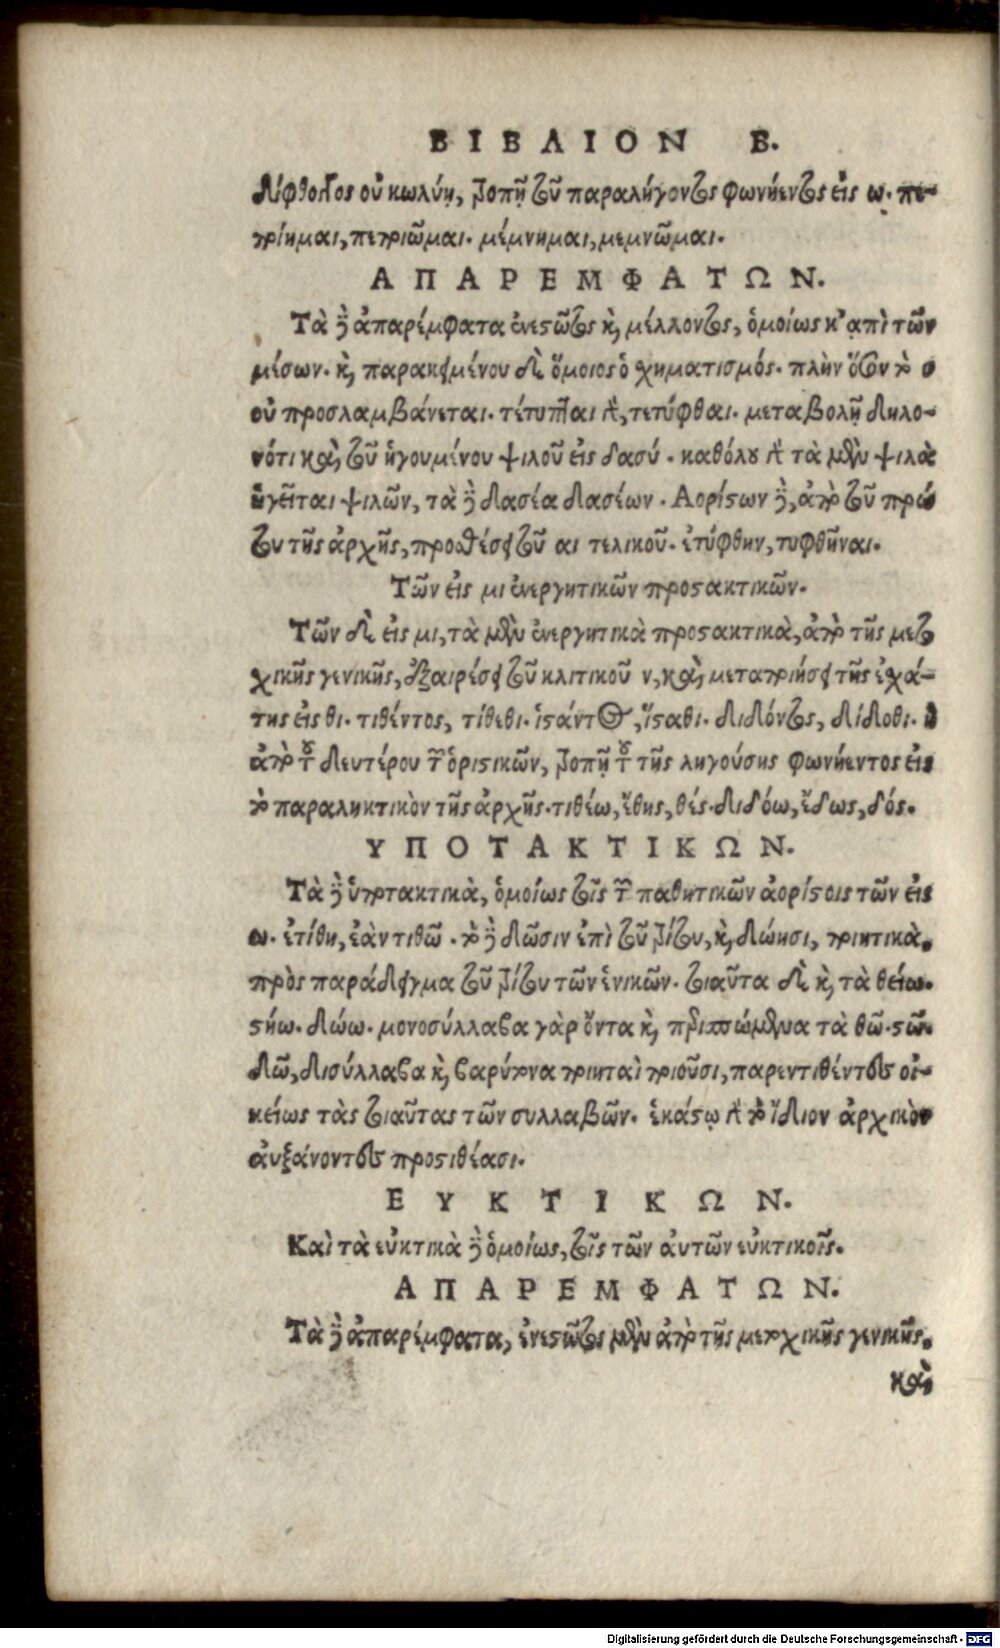 ΒΙΒΛΙΟΝ Β.
δίφθογγος οὐ κωλύῃ, τροπῇ τοῦ παραλήγοντος φωνήεντος εἰς ω. πε-
ποίημαι, πεποιῶμαι. μέμνημαι, μεμνῶμαι.
ΑΠΑΡΕΜΦΑΤΩΝ.
Τὰ δὲ ἀπαρέμφατα ἐνεστῶτος καὶ μέλλοντος, ὁμοίως κἀπὶ τῶν
μέσων. καὶ παρακειμένου δὲ ὅμοιος ὁ χηματισμός. πλὴν ὅσον τὸ σ
οὐ προσλαμβάνεται. τέτυπται γὰρ, τετύφθαι. μεταβολῇ δηλο-
νότι καὶ τοῦ ἡγουμένου ψιλοῦ εἰς δασύ. καθόλου γὰρ τὰ μὲν ψιλὰ
ἡγεῖται ψιλῶν, τὰ δὲ δασέα δασέων. Αορίστων δὲ, ἀπὸ τοῦ πρώ
του τῆς ἀρχῆς, προσθέσει τοῦ αι τελικοῦ. ἐτύφθην, τυφθῆναι.
Τῶν εἰς μι ἐνεργητικῶν προστακτικῶν.
Τῶν δὲ εἰς μι, τὰ μὲν ἐνεργητικὰ προστακτικὰ, ἀπὸ τῆς μετο
χικῆς γενικῆς, ἐξαιρέσει τοῦ κλιτικοῦ ν, καὶ μετατροπῇ τῆς ἐχά-
της εἰς θι. τιθέντος, τίθεθι. ἱστάντος, ἵσταθι. διδόντος, δίδοθι. ἢ
ἀπὸ τοῦ δευτέρου τῶν ὁριστικῶν, τροπῇ τοῦ τῆς ληγούσης φωνήεντος εἰς
τὸ παραληκτικὸν τῆς ἀρχῆς. τιθέω, ἔθης, θές. διδόω, ἔδως, δός.
ΥΠΟΤΑΚΤΙΚΩΝ.
Τὰ δὲ ὑποτακτικὰ, ὁμοίως τοῖς τῶν παθητικῶν ἀορίστοις τῶν εἰς
ω. ἐτίθη, ἐὰν τιθῶ. τὸ δὲ δῶσιν ἐπὶ τοῦ τρίτου, καὶ δώησι, ποιητικὰ.
πρὸς παράδειγμα τοῦ τρίτου τῶν ἑνικῶν. τοιαῦτα δὲ καὶ τὰ θείω.
στήω. δώω. μονοσύλλαβα γὰρ ὄντα καὶ περισπώμενα τὰ θῶ. στῶ.
δῶ, δισύλλαβα καὶ βαρύτονα ποιηταὶ ποιοῦσι, παρεντιθέντες οἰ-
κείως τὰς τοιαῦτας τῶν συλλαβῶν. ἑκάστῳ γὰρ τὸ ἴδιον ἀρχικὸν
αὐξάνοντες προστιθέασι.
ΕΥΚΤΙΚΩΝ.
Καὶ τὰ εὐκτικὰ δὲ ὁμοίως, τοῖς τῶν αὐτῶν εὐκτικοῖς.
ΑΠΑΡΕΜΦΑΤΩΝ.
Τὰ δὲ ἀπαρέμφατα, ἐνεστῶτος μὲν ἀπὸ τῆς μετοχικῆς γενικῆς.
καὶ
Digitalisierung gefördert durch die Deutsche Forschungsgemeinschaft - DFG